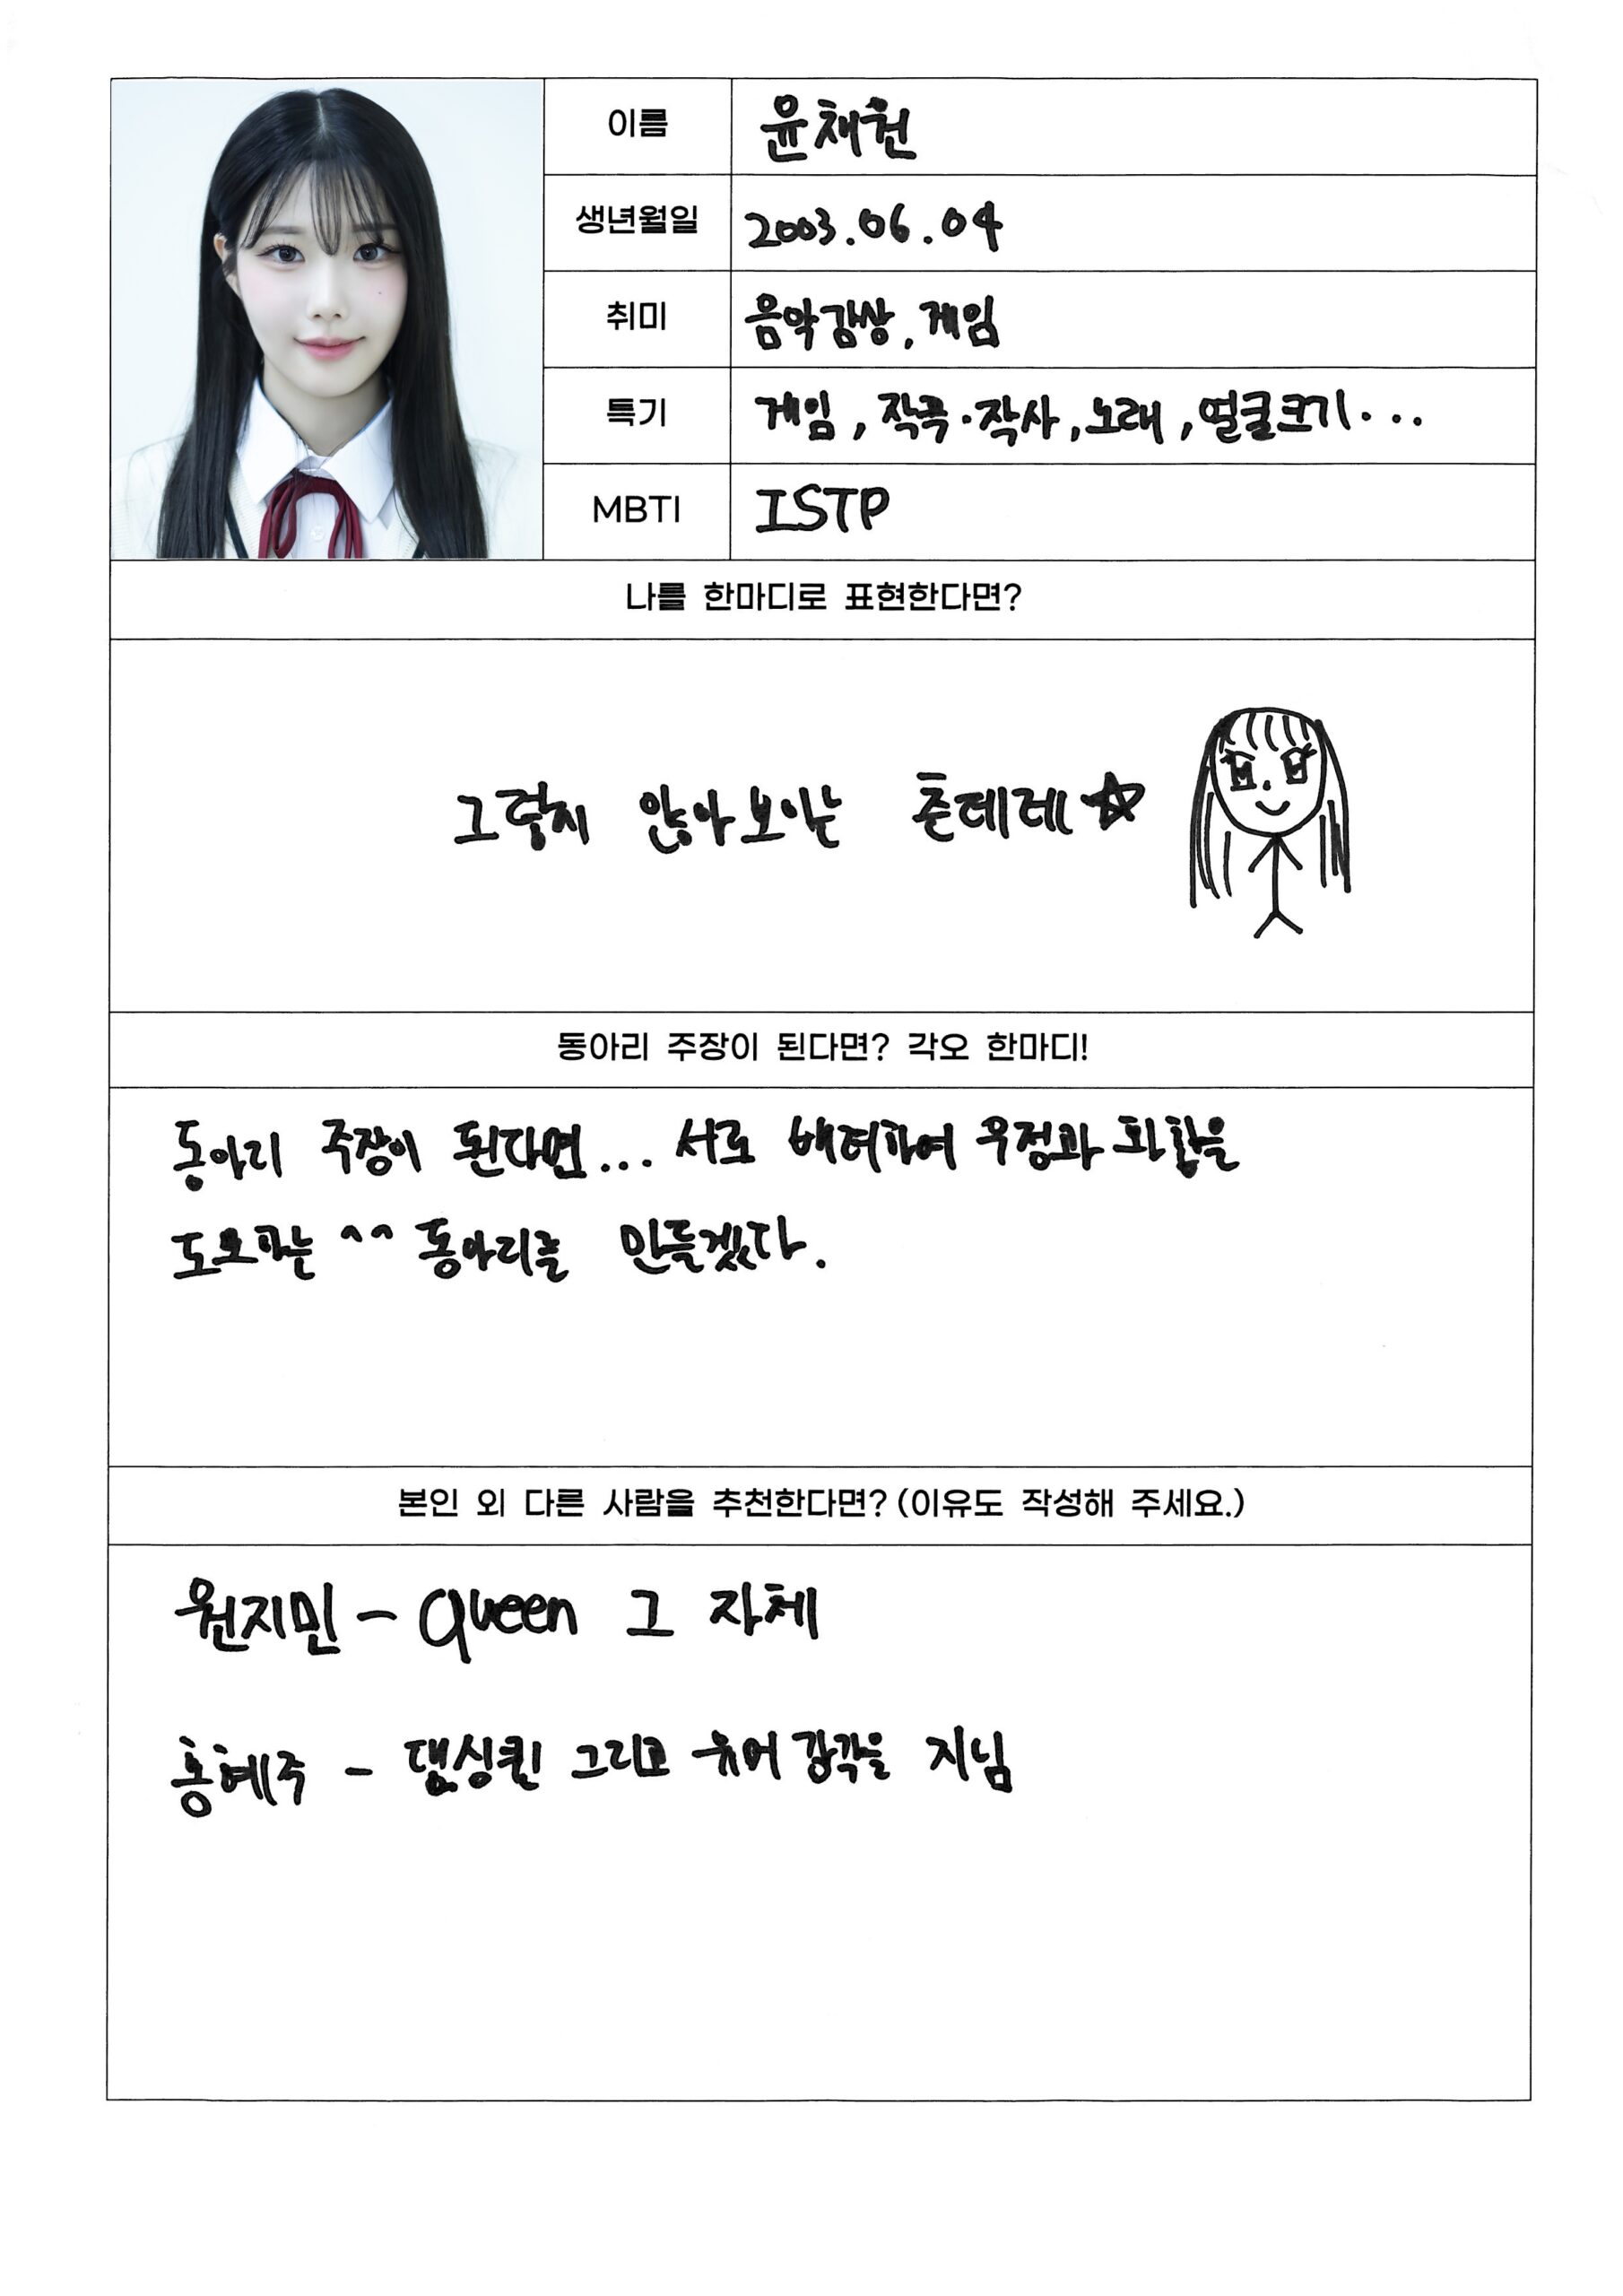 이름 윤채원
생년월일 2003.06.04
취미 음악감상, 게임
특기 게임, 작곡·작사, 노래, 얼굴크기···
MBTI ISTP
나를 한마디로 표현한다면?
그렇지 않아보이는 츤데레☆
동아리 주장이 된다면? 각오 한마디!
동아리 주장이 된다면... 서로 배려하여 우정과 화합을
도모하는 ^^ 동아리를 만들겠다.
본인 외 다른 사람을 추천한다면? (이유도 작성해 주세요.)
원지민 - Queen 그 자체
홍혜주 - 댄싱퀸 그리고 유머 감각을 지님